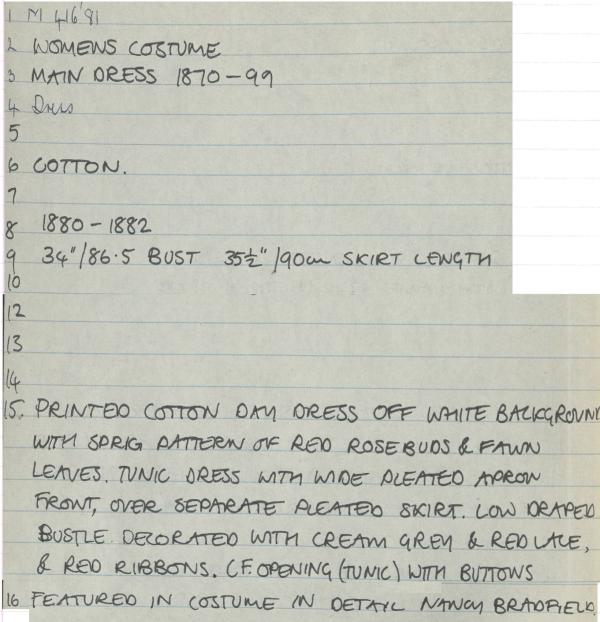 1 M 416'81
2 WOMENS COSTUME
3 MAIN DRESS 1870-99
4 Dress
5
6 COTTON.
7
8 1880-1882
9 34"/86.5 BUST 35½"/90cm SKIRT LENGTH
10
12
13
14
15. PRINTED COTTON DAY DRESS OFF WHITE BACKGROUND
WITH SPRIG PATTERN OF RED ROSEBUDS & FAWN
LEAVES. TUNIC DRESS WITH WIDE PLEATED APRON
FRONT, OVER SEPARATE PLEATED SKIRT. LOW DRAPED
BUSTLE. DECORATED WITH CREAM GREY & RED LACE,
& RED RIBBONS. C.F. OPENING (TUNIC) WITH BUTTONS
16 FEATURED IN COSTUME IN DETAIL NANCY BRADFIELD.